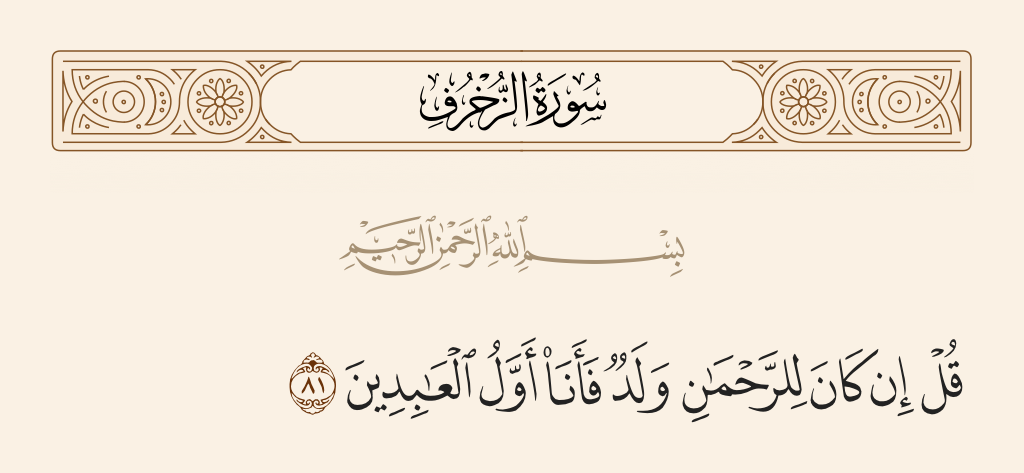 سُورَةُ الزُّخْرُفِ
بِسْمِ ٱللَّهِ ٱلرَّحْمَٰنِ ٱلرَّحِيمِ
قُلْ إِن كَانَ لِلرَّحْمَـٰنِ وَلَدٌ فَأَنَا۠ أَوَّلُ ٱلْعَـٰبِدِينَ ٨١